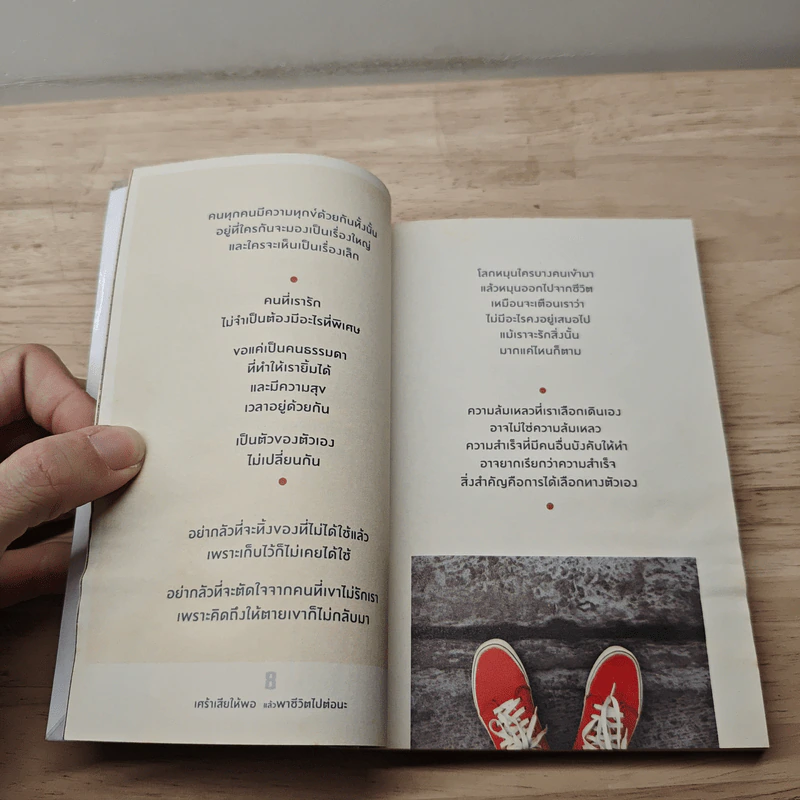 คนทุกคนมีความทุกข์ด้วยกันทั้งนั้น
อยู่ที่ใครกันจะมองเป็นเรื่องใหญ่
และใครจะเห็นเป็นเรื่องเล็ก
คนที่เรารัก
ไม่จำเป็นต้องมีอะไรที่พิเศษ
ขอแค่เป็นคนธรรมดา
ที่ทำให้เรายิ้มได้
และมีความสุข
เวลาอยู่ด้วยกัน
เป็นตัวของตัวเอง
ไม่เปลี่ยนกัน
อย่ากลัวที่จะทิ้งของที่ไม่ได้ใช้แล้ว
เพราะเก็บไว้ก็ไม่เคยได้ใช้
อย่ากลัวที่จะตัดใจจากคนที่เขาไม่รักเรา
เพราะคิดถึงให้ตายเขาก็ไม่กลับมา
8
เศร้าเสียให้พอ แล้วพาชีวิตไปต่อนะ
โลกหมุนใครบางคนเข้ามา
แล้วหมุนออกไปจากชีวิต
เหมือนจะเตือนเราว่า
ไม่มีอะไรคงอยู่เสมอไป
แม้เราจะรักสิ่งนั้น
มากแค่ไหนก็ตาม
ความล้มเหลวที่เราเลือกเดินเอง
อาจไม่ใช่ความล้มเหลว
ความสำเร็จที่มีคนอื่นบังคับให้ทำ
อาจยากเรียกว่าความสำเร็จ
สิ่งสำคัญคือการได้เลือกทางตัวเอง